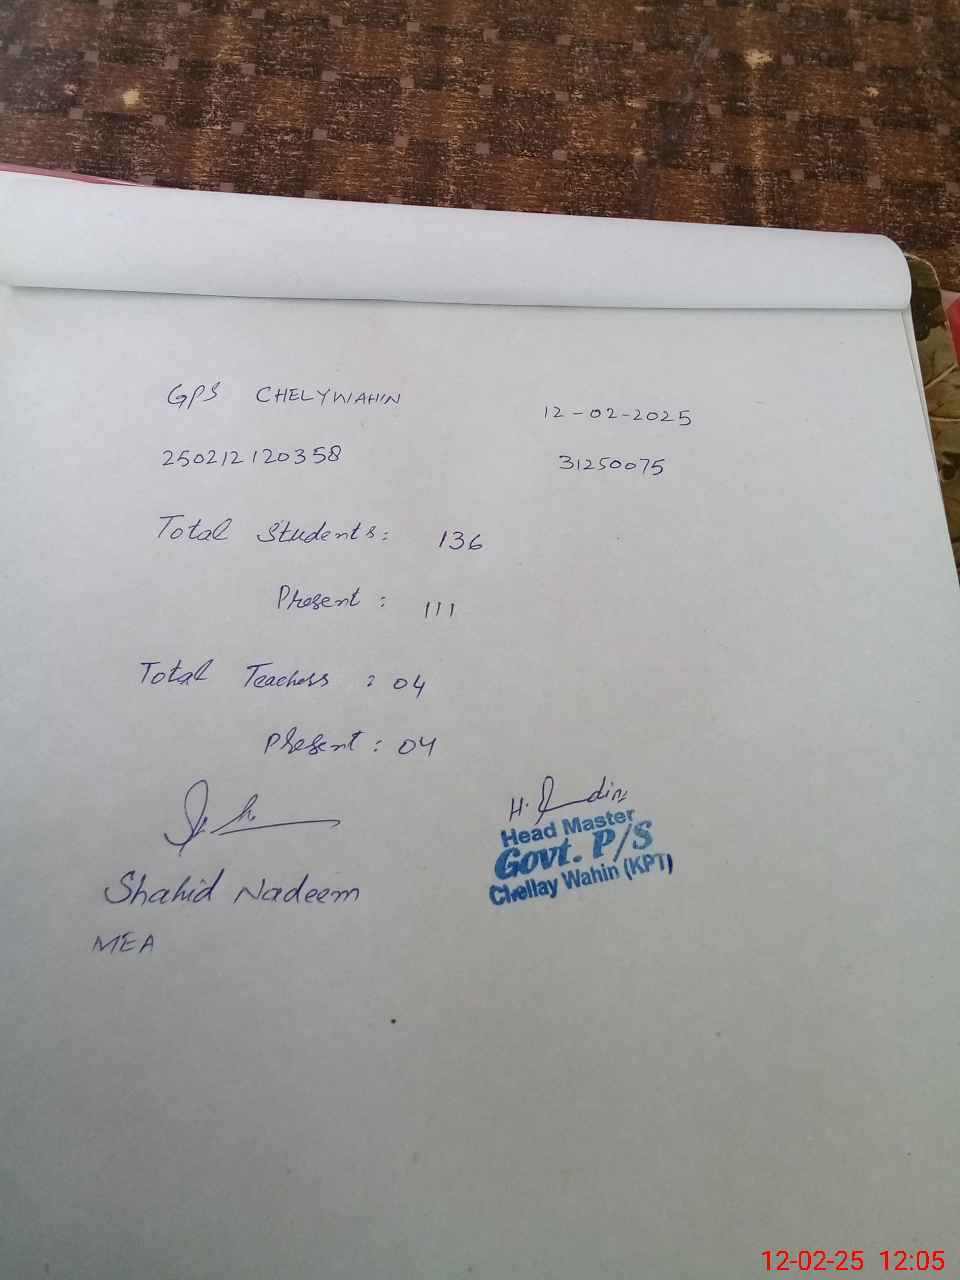 GPS CHELYWAHIN
12-02-2025
250212120358
31250075
Total Students: 136
Present : 111
Total Teachers : 04
Present : 04
Head Master
Govt. P/S
Chellay Wahin (KPT)
Shahid Nadeem
MEA
12-02-25 12:05